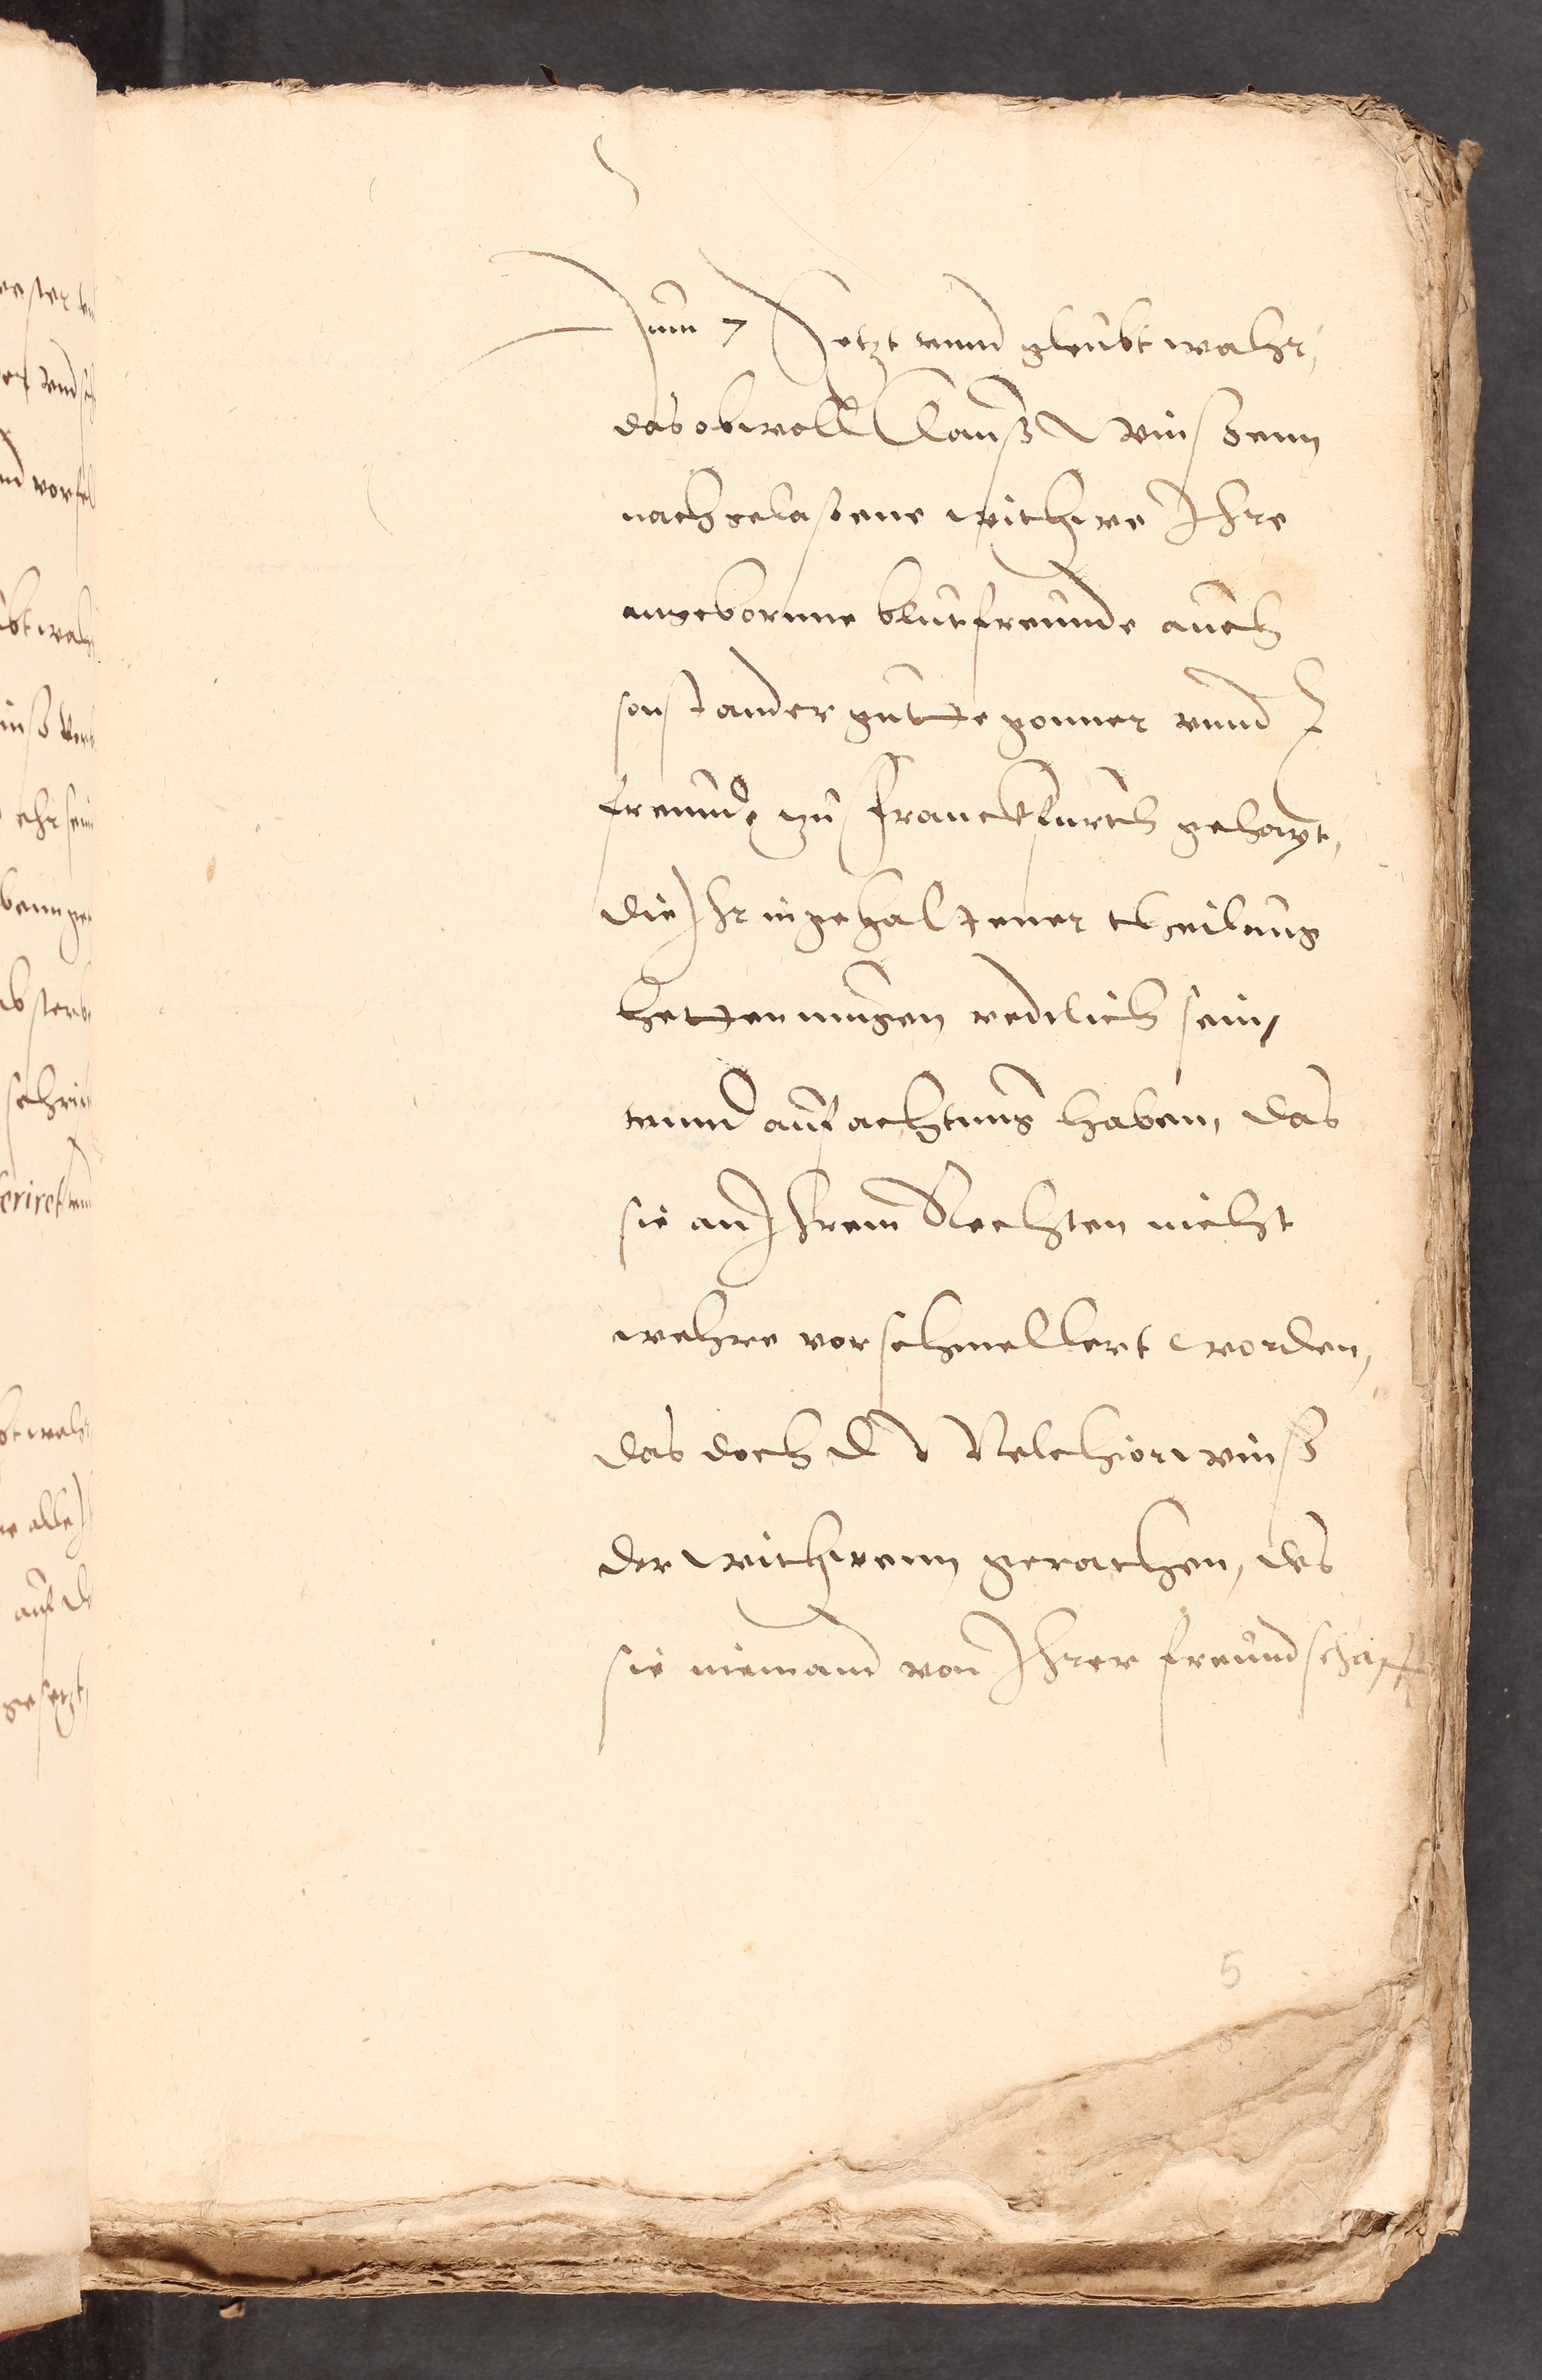 Zum 7 Setzt vnnd gleubt wahr,
das obwoll Clauß Winß enn
nachgelaßene withwe Ihre
angebornne blutfreunde auch
sonst ander gutte gonner vnnd
freunde zu Franckfurth gehapt,
die Ihr in gehaltener theilung
hetten mugen redtlich sein,
vnnd auf achtung haben, das
sie an Ihrem Rechten nicht
wehre vorschmellert worden,
das doch D Melchior winß
der withwenn gerathen, das
sie niemand von Ihrer freundschafft
5